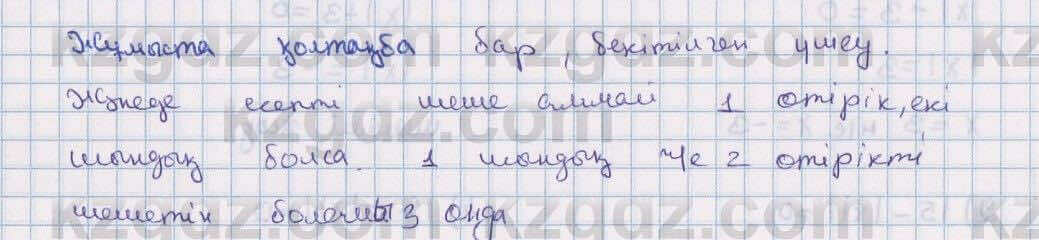 Жұмыста қолтаңба бар, бекітілген үшеу.
Жүйеде есепті шеше алмай 1 өтірік, екі
шындық болса. 1 шындық не 2 өтірікті
шешетін боламыз онда